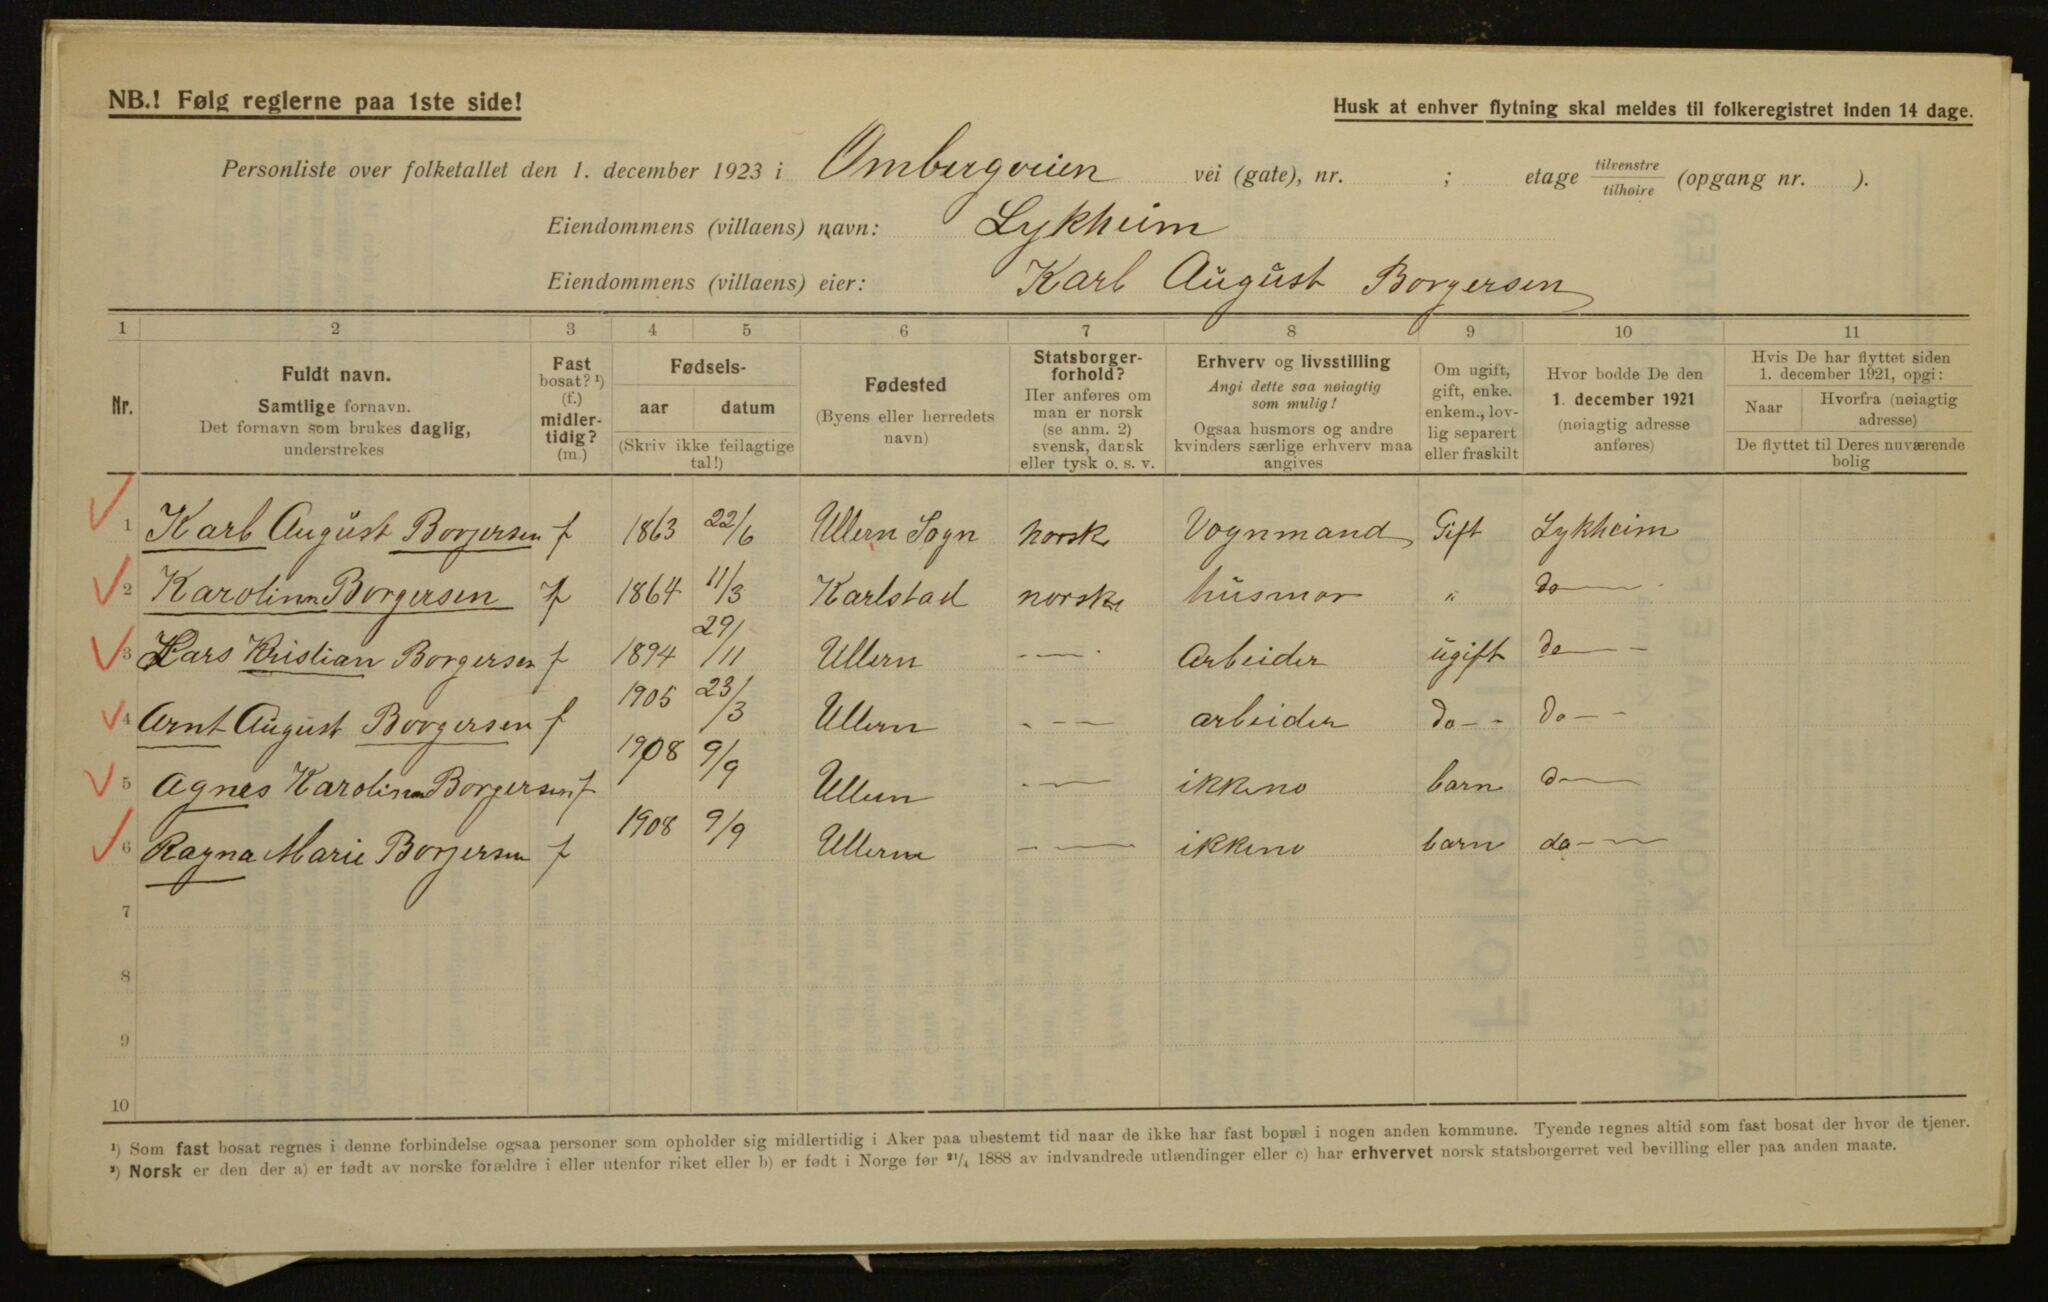 NB.! Følg reglerne paa 1ste side!
Husk at enhver flytning skal meldes til folkeregistret inden 14 dage.
Personliste over folketallet den 1. december 1923 i Ombergveien vei (gate), nr. ; etage tilvenstre tilhøire (opgang nr. ).
Eiendommens (villaens) navn: Lykheim
Eiendommens (villaens) eier: Karl August Borgersen
1 2 3 4 5 6 7 8 9 10 11
Nr.
Fuldt navn.
Samtlige fornavn.
Det fornavn som brukes daglig,
understrekes
Fast
bosat? ¹)
(f.)
midler-
tidig?
(m.)
Fødsels-
aar datum
(Skriv ikke feilagtige
tal!)
Fødested
(Byens eller herredets
navn)
Statsborger-
forhold?
Her anføres om
man er norsk
(se anm. 2)
svensk, dansk
eller tysk o. s. v.
Erhverv og livsstilling
Angi dette saa nøiagtig
som mulig!
Ogsaa husmors og andre
kvinders særlige erhverv maa
angives
Om ugift,
gift, enke.
enkem., lov-
lig separert
eller fraskilt
Hvor bodde De den
1. december 1921
(nøiagtig adresse
anføres)
Hvis De har flyttet siden
1. december 1921, opgi:
Naar Hvorfra (nøiagtig
adresse)
De flyttet til Deres nuværende
bolig
1 Karl August Borgersen f 1863 22/6 Ullern Sogn norsk Vognmand Gift Lykheim
2 Karolinn Borgersen f 1864 11/3 Karlstad norsk husmor " do
3 Lars Kristian Borgersen f 1894 29/11 Ullern - - - Arbeider ugift do -
4 Arnt August Borgersen f 1905 23/3 Ullern - - - arbeider do - - do - -
5 Agnes Karolinn Borgersen f 1908 9/9 Ullern - - ikkeno barn do -
6 Ragna Marie Borgersen f 1908 9/9 Ullern - - ikkeno barn do - -
7
8
9
10
¹) Som fast bosat regnes i denne forbindelse ogsaa personer som opholder sig midlertidig i Aker paa ubestemt tid naar de ikke har fast bopæl i nogen anden kommune. Tyende regnes altid som fast bosat der hvor de tjener.
²) Norsk er den der a) er født av norske forældre i eller utenfor riket eller b) er født i Norge før ²¹/₄ 1888 av indvandrede utlændinger eller c) har erhvervet norsk statsborgerret ved bevilling eller paa anden maate.